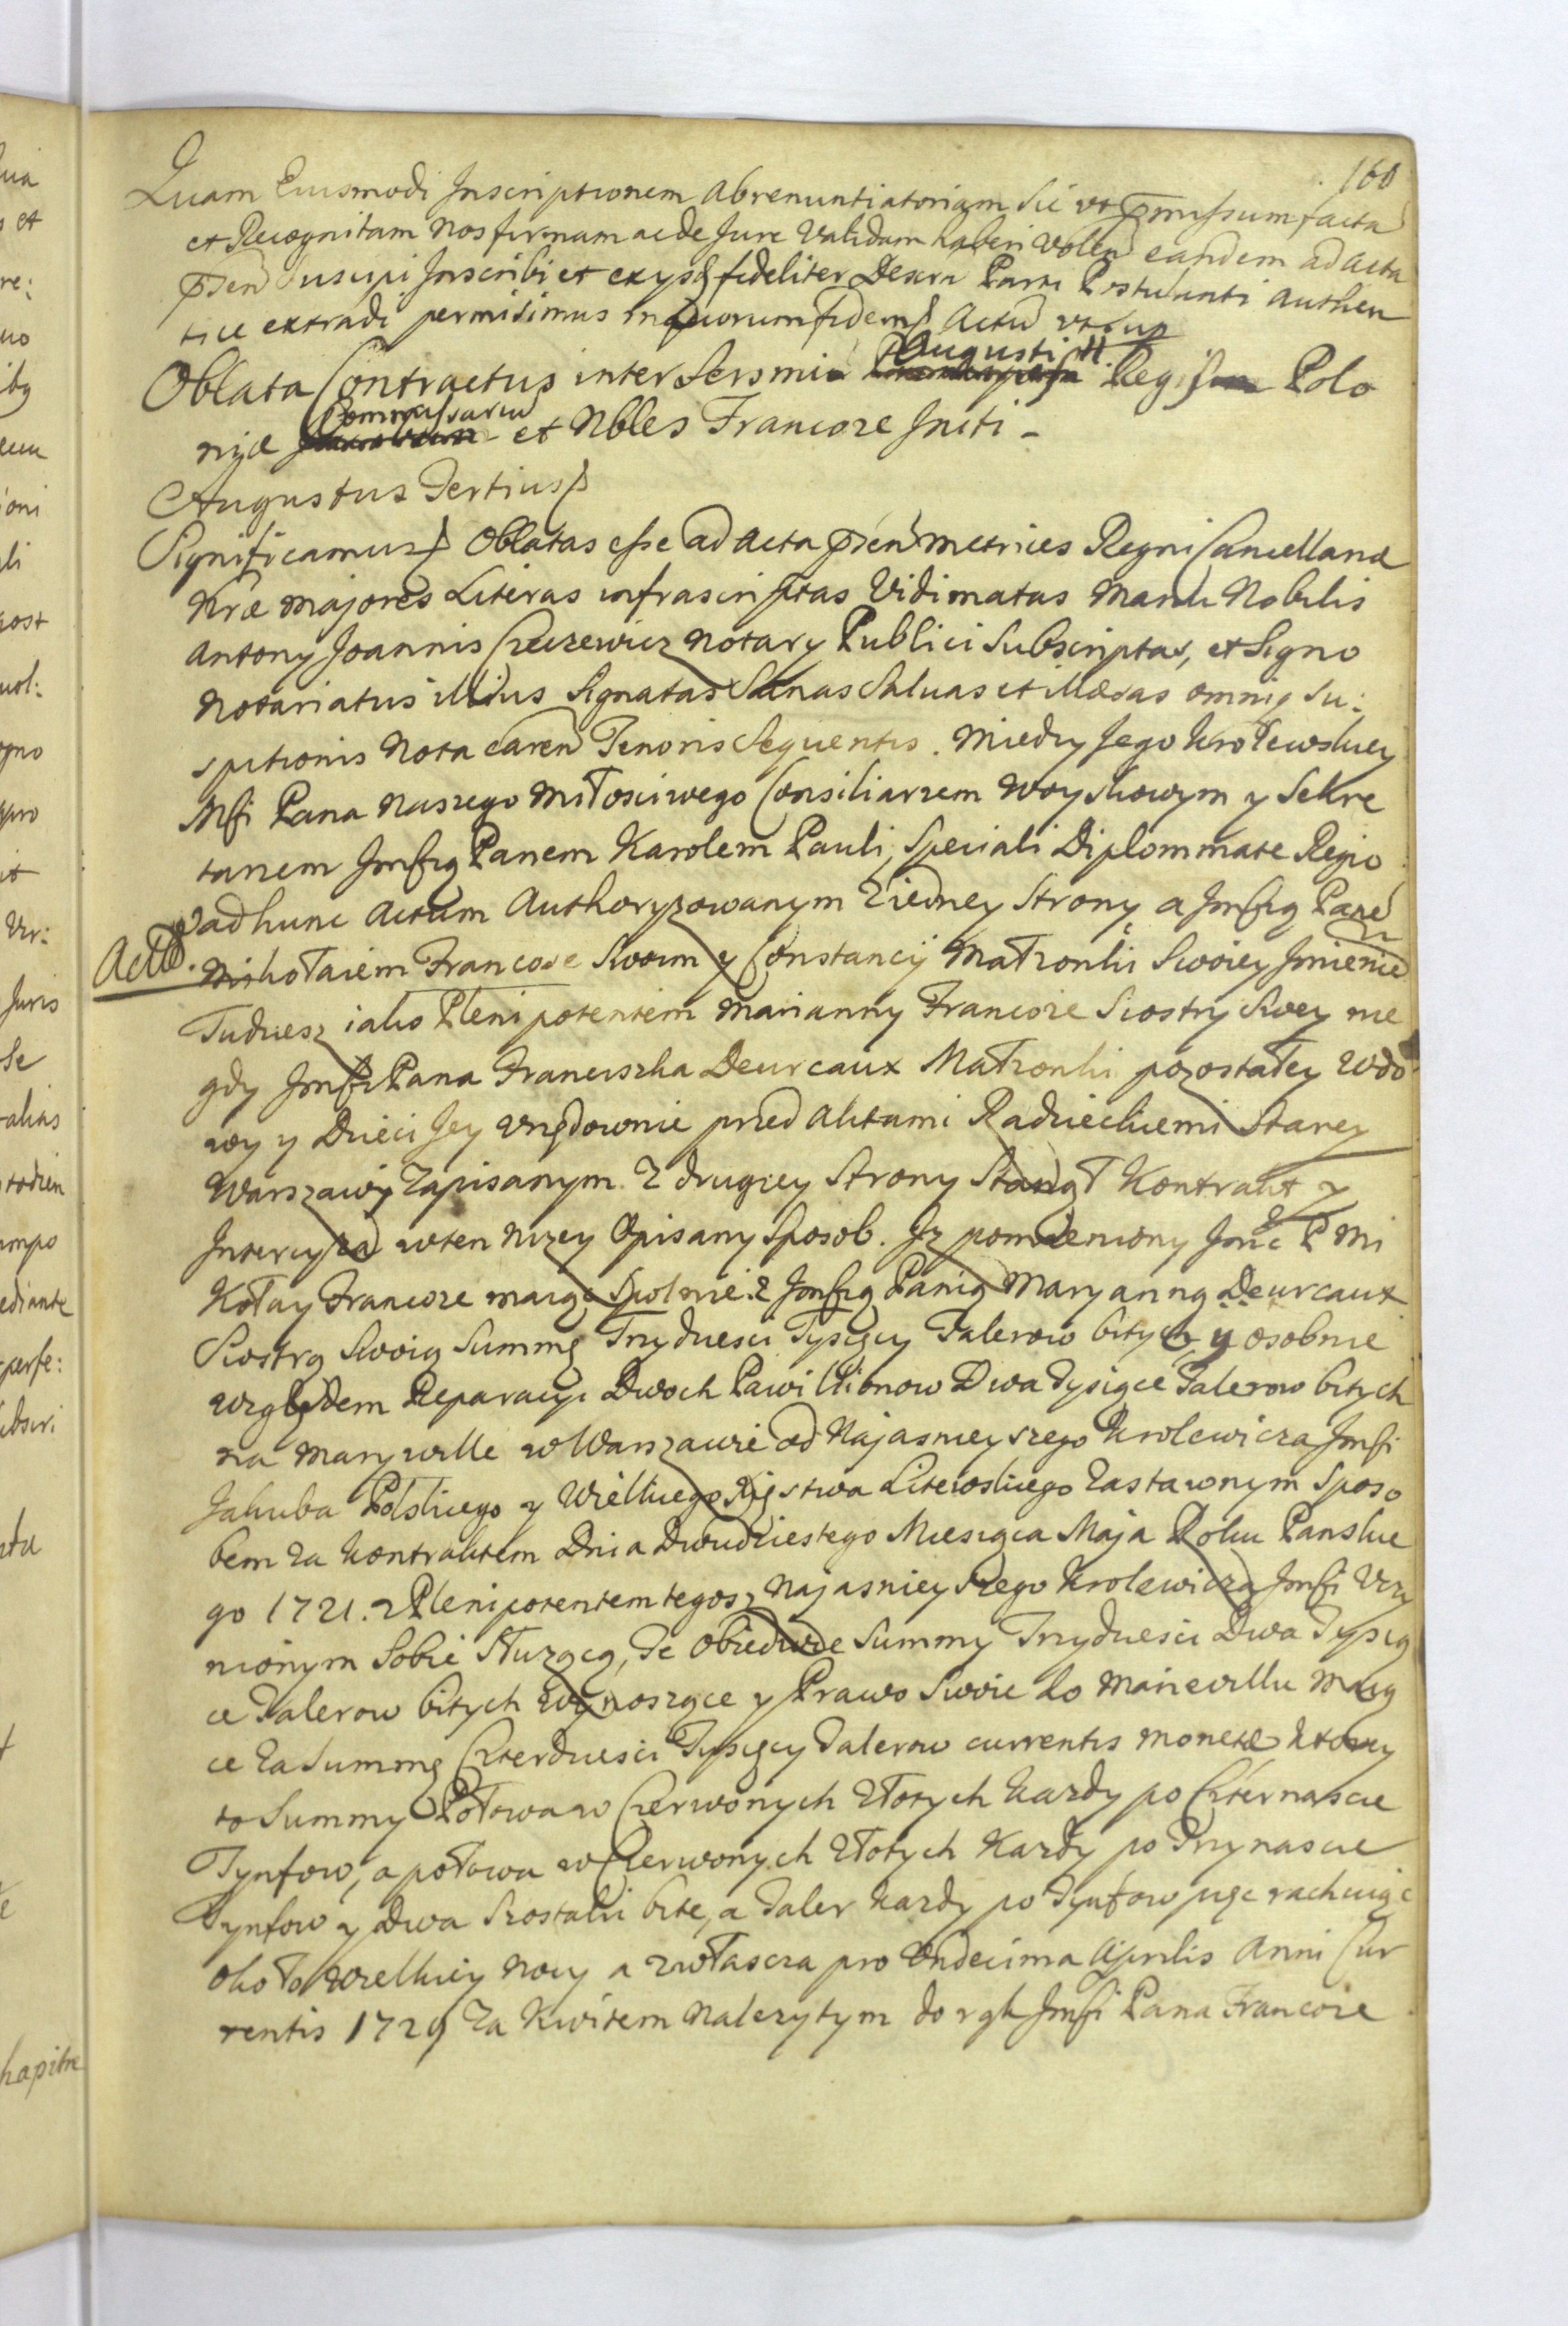 160
Quam Eiusmodi Inscriptionem Abrenuntiatoriam Sic ut pmissum facta
et Recognitam Nos firmam ac de Jure Validam haberi Volen eandem ad acta
psen suscipi Inscribi et ex ysq fideliter Descri Parti Postulanti authen
tice extradi permisimus in quorum fidem Actu ut sup
Oblata Contractus inter Sersmi Augusti III Regis Polo
niæ Commissariu et Nbles Francoze Initi -
Augustus Tertius
Significamus Oblatas esse ad acta psen metrices Regni Cancellariæ
Nræ majores Literas infrascriptas Vidimatas Manu Nobilis
Antony Joannis Czeczewicz Notary Publici Subscriptas, et Signo
Notariatus illius Signatas Sanas Saluas et illæsas omniq su:
spitionis Nota caren Tenoris Sequentis. Miedzy Jego Krolewskiey
Msci Pana Naszego Miłosciwego Consiliarzem Woyskowym y Sekre
tarzem Jmscią Panem Karolem Pauli, Speciali Diplommate Regio
ad hunc actum Authoryzowanym z iedney Strony a Jmscią Pane
Actū. Mikołaiem Francoze Swoim y Constancÿi Małzonki Swoiey Jmienie
Tudziesz iako Plenipotentem Marianny Francoize Siostry Swey nie
gdy Jmsci Pana Franciszka Deurcaux Małzonki pozostałey wdo
wy y Dzieci Jey Vrzędownie przed Aktami Radzieckiemi Starey
Warszawy Zapisanym. Z drugiey Strony Stanął Kontrakt y
Intercyza w ten nizey Opisany Sposob. Jz pomieniony Jmc P Mi
Kołay Francoze maiąc Społnie z Jmscią Panią Maryanną Deurcaux
Siostrą Swoią Summę Trzydziesci Tysięcy Talerow bitych y osobnie
względem Reparacyi Dwoch Pawillionow Dwa Tysiące Talerow bitych
na Marywille w Warszawie od Najasnieyszego Krolewicza Jmsci
Jakuba Polskiego y Wielkiego Xięstwa Litewskiego Zastawnym Sposo
bem za Kontraktem Dnia Dwudziestego Miesiąca Maja Roku Panskie
go 1721. z Plenipotentem tegosz Najasnieyszego Krolewicza Jmsci Vczy
nionym Sobie Słuzącą, Te obiedwie Summy Trzydziesci Dwa Tysią
ce Talerow bitych wynoszące y Prawo Swoie do Marievillu maią
ce za Summę Czterdziesci Tysięcy Talerow currentis monetæ ktorey
to Summy Połowa w Czerwonych Złotych kazdy po Czternascie
Tynfow, a połowa w Czerwonych Złotych Kazdy po Trzynascie
Tynfow y Dwa Szostaki bite, a Taler kazdy po Tynfow pięc rachuiąc
około Wielkiey Nocy a zwłascza pro Vndecima Aprilis Anni Cur
rentis 1729 za Kwitem Nalezytym do rąk Jmsci Pana Francoize